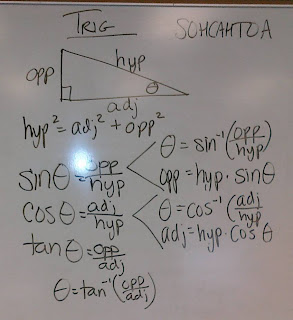 TRIG SOHCAHTOA
hyp
opp
θ
adj
hyp² = adj² + opp²
θ = sin⁻¹(opp/hyp)
sinθ = opp/hyp
opp = hyp · sinθ
θ = cos⁻¹(adj/hyp
cosθ = adj/hyp
adj = hyp · cosθ
tanθ = opp/adj
θ = tan⁻¹(opp/adj)